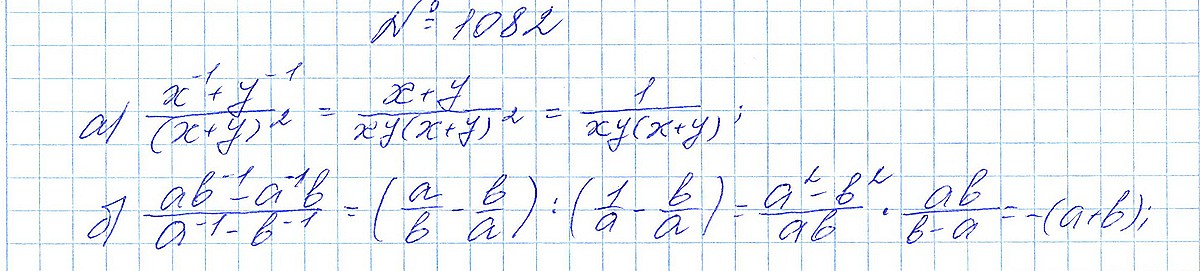 № 1082
а) (x⁻¹+y⁻¹)/(x+y)² = (x+y)/(xy(x+y)²) = 1/(xy(x+y));
б) (ab⁻¹-a⁻¹b)/(a⁻¹-b⁻¹) = (a/b - b/a) : (1/a - b/a) = (a²-b²)/(ab) · (ab)/(b-a) = -(a+b);